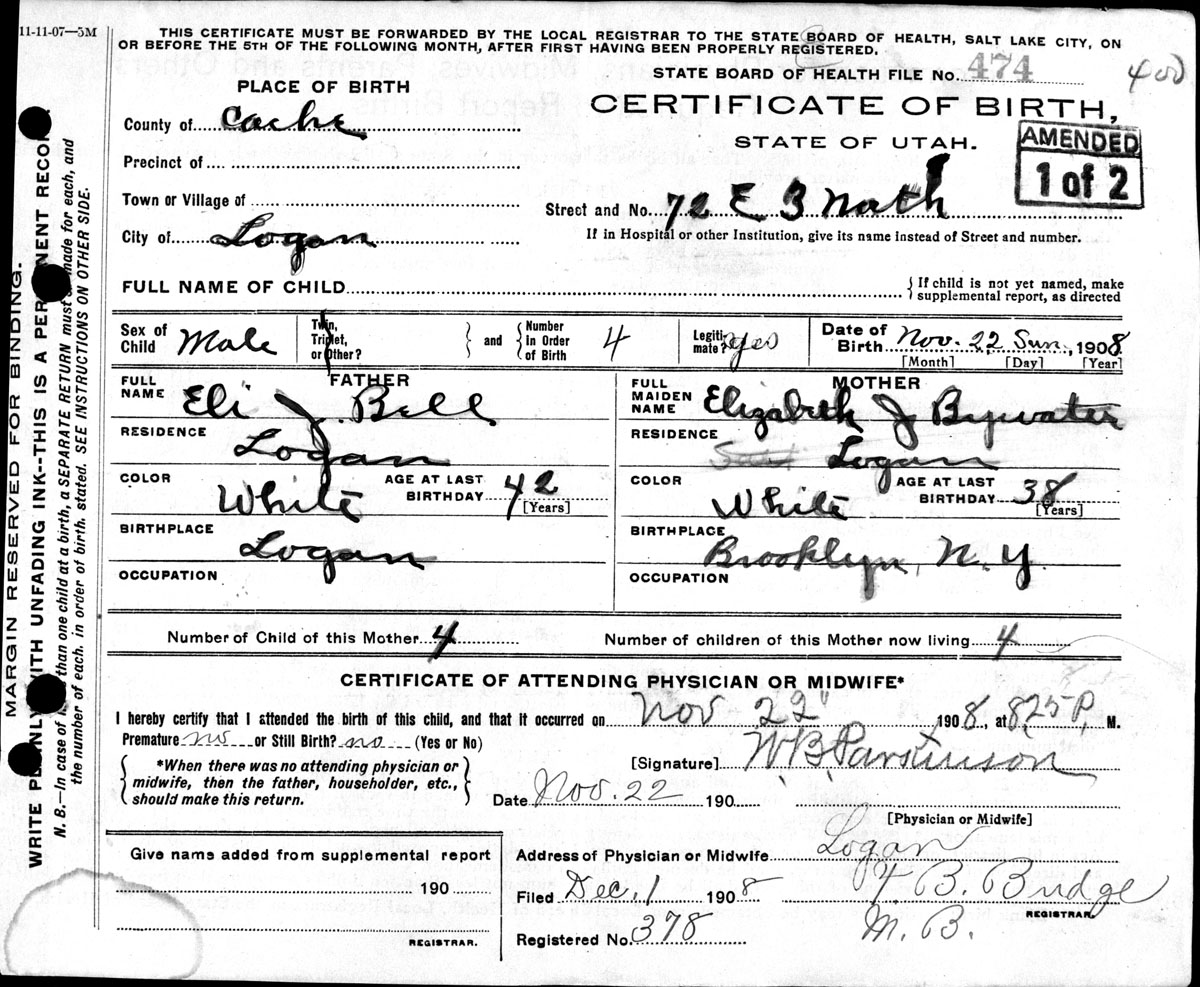 11-11-07—5M
THIS CERTIFICATE MUST BE FORWARDED BY THE LOCAL REGISTRAR TO THE STATE BOARD OF HEALTH, SALT LAKE CITY, ON
OR BEFORE THE 5TH OF THE FOLLOWING MONTH, AFTER FIRST HAVING BEEN PROPERLY REGISTERED.
STATE BOARD OF HEALTH FILE No. 474
400
PLACE OF BIRTH
CERTIFICATE OF BIRTH,
STATE OF UTAH.
AMENDED
1 of 2
County of Cache
Precinct of
Town or Village of
Street and No. 72 E 3 North
City of Logan
If in Hospital or other Institution, give its name instead of Street and number.
FULL NAME OF CHILD
{ If child is not yet named, make
supplemental report, as directed
Sex of Child Male
Twin, Triplet, or Other?
} and { Number In Order of Birth 4
Legitimate? yes
Date of Birth Nov. 22 Sun, 1908
[Month] [Day] [Year]
FATHER
FULL NAME Eli J. Bell
RESIDENCE Logan
COLOR White
AGE AT LAST BIRTHDAY 42 [Years]
BIRTHPLACE Logan
OCCUPATION
MOTHER
FULL MAIDEN NAME Elizabeth J Bywater
RESIDENCE Logan
COLOR White
AGE AT LAST BIRTHDAY 38 [Years]
BIRTHPLACE Brooklyn, N.Y.
OCCUPATION
Number of Child of this Mother 4
Number of children of this Mother now living 4
CERTIFICATE OF ATTENDING PHYSICIAN OR MIDWIFE*
I hereby certify that I attended the birth of this child, and that it occurred on Nov 22" 1908, at 8,25 P, M.
Premature no or Still Birth? no (Yes or No)
{ *When there was no attending physician or
midwife, then the father, householder, etc.,
should make this return. }
[Signature] W.B. Parkinson
Date Nov. 22 190
[Physician or Midwife]
Give name added from supplemental report
190
REGISTRAR.
Address of Physician or Midwife Logan
Filed Dec, 1 1908
B. Budge
REGISTRAR.
Registered No. 378
M. B.
MARGIN RESERVED FOR BINDING.
WRITE PLAINLY WITH UNFADING INK--THIS IS A PERMANENT RECORD.
N. B.—In case of more than one child at a birth, a SEPARATE RETURN must be made for each, and
the number of each, in order of birth, stated. SEE INSTRUCTIONS ON OTHER SIDE.